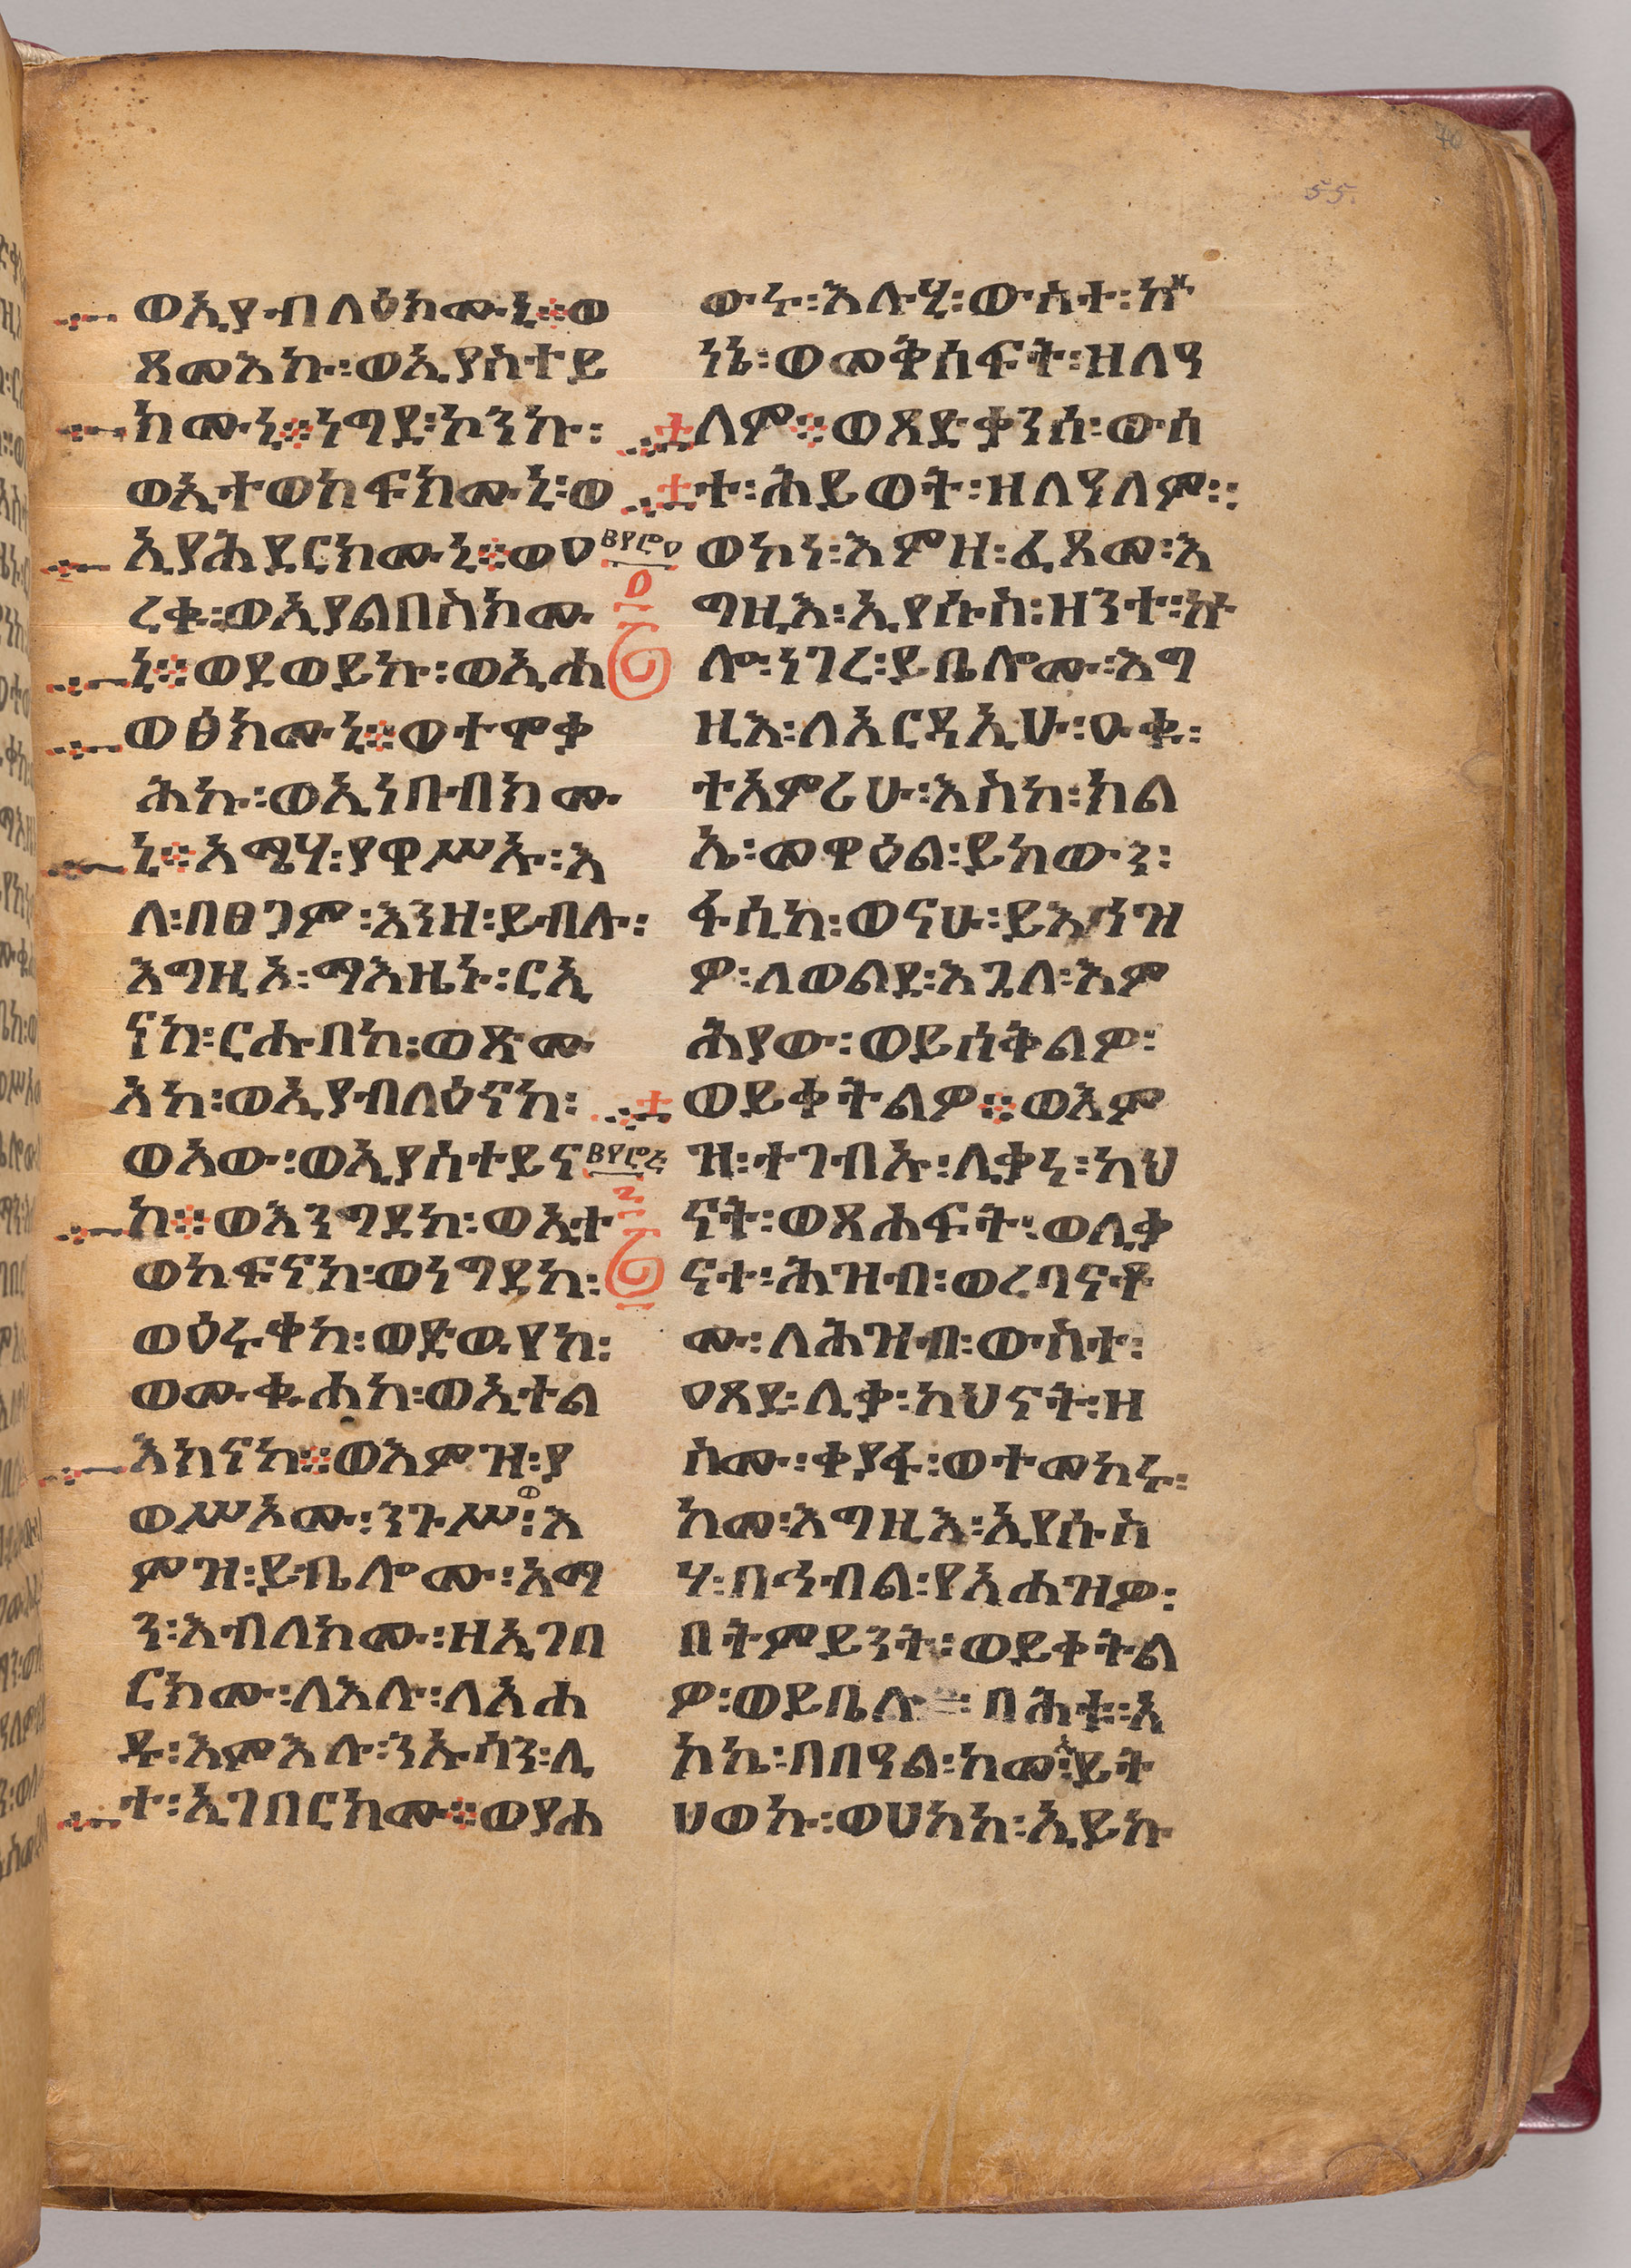 55
ወኢያብላዕክሙኒ፨ወ
ጸመእኩ፡ወኢያስተይ
ክሙኒ፨ነግደ፡ኮንኩ፡
ወኢተወከፍክሙኒ፡ወ
ኢያሕየርክሙኒ፨ወዐ
ረቁ፡ወኢያልበስክሙ
ኒ፨ወደወይኩ፡ወኢሐ
ወፅክሙኒ፨ወተሞቃ
ሕኩ፡ወኢነበብክሙ
ኒ፨አሜሃ፡ያዋሥኡ፡እ
ለ፡በፀጋም፡እንዘ፡ይብሉ፡
እግዚኦ፡ማእዜኑ፡ርኢ
ናከ፡ርሑበከ፡ወጽሙ
አከ፡ወኢያብላዕናከ፡
ወአው፡ወኢያስተይና
ከ፨ወእንግደከ፡ወኢተ
ወከፍናከ፡ወነግደከ፡
ወዕሩቀከ፡ወድዉየከ፡
ወሙቁሐከ፡ወኢተል
እክናከ፨ወእምዝ፡ያ
ወሥኦሙ፡ንጉሥ፡እ
ምዝ፡ይቤሎሙ፡አማ
ን፡እብለክሙ፡ዘኢገበ
ርክሙ፡ለእሉ፡ለአሐ
ዱ፡እምእሉ፡ንኡሳን፡ሊ
ተ፡ኢገበርክሙ፨ወያሐ
ውሩ፡እሉሂ፡ውስተ፡ኵ
ነኔ፡ወመቅሰፍት፡ዘለዓ
ለም፨ወጻድቃንሰ፡ውስ
ተ፡ሕይወት፡ዘለዓለም፡፡
ወኮነ፡እምዘ፡ፈጸመ፡እ
ግዚእ፡ኢየሱስ፡ዘንተ፡ኵ
ሎ፡ነገረ፡ይቤሎሙ፡እግ
ዚእ፡ለአርዳኢሁ፡ዑቁ፡
ተአምሪሁ፡እስከ፡ክል
ኤ፡መዋዕል፡ይከውን፡
ፋሲካ፡ወናሁ፡ይእኅዝ
ዎ፡ለወልደ፡እጓለ፡እም
ሕያው፡ወይሰቅልዎ፡
ወይቀትልዎ፨ወእም
ዝ፡ተጋብኡ፡ሊቃነ፡ካህ
ናት፡ወጸሐፍት፡ወሊቃ
ናተ፡ሕዝብ፡ወረባናቶ
ሙ፡ለሕዝብ፡ውስተ፡
ዐጸደ፡ሊቃ፡ካህናት፡ዘ
ስሙ፡ቀያፋ፡ወተመከሩ፡
ከመ፡እግዚእ፡ኢየሱስ
ሃ፡በኅብል፡የአሐዝዎ፡
በትምይንት፡ወይቀትል
ዎ፡ወይቤሉ፡በሕቱ፡አ
ኮኬ፡በበዓል፡ከመ፡ኢይት
ሀወኩ፡ወሀከከ፡ኢይኩ